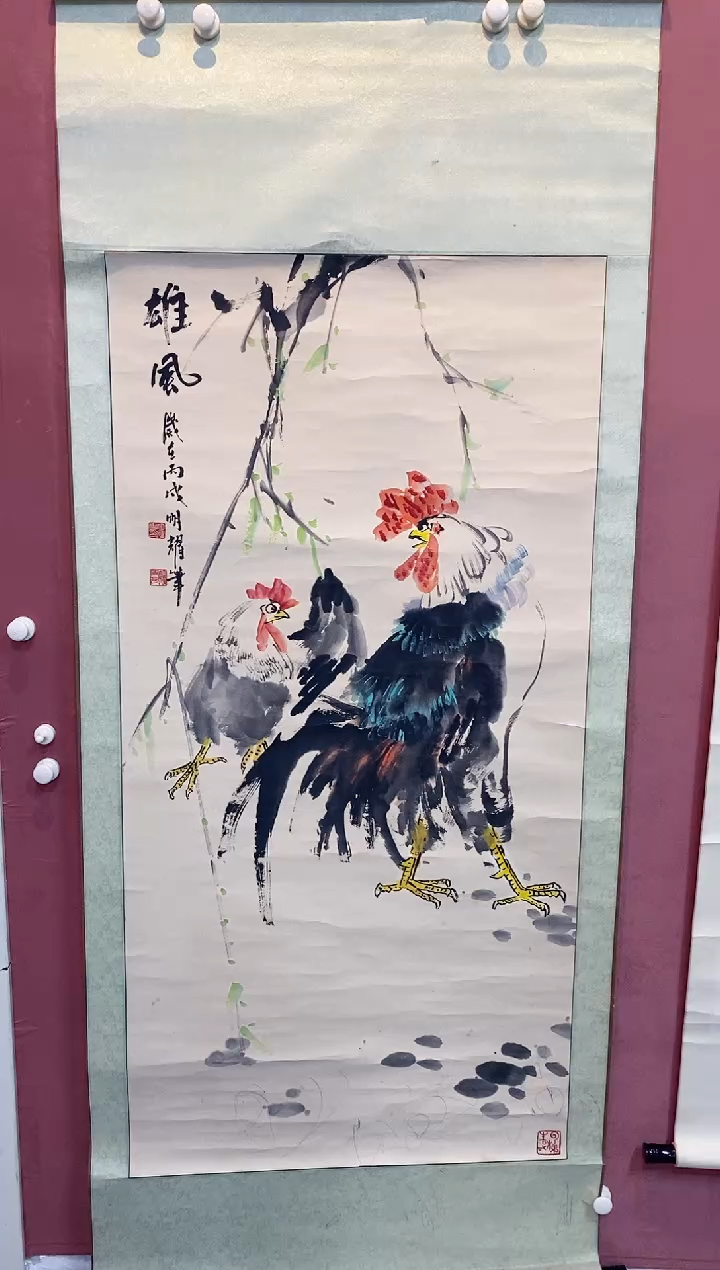 雄風
歲在丙戌明耀筆